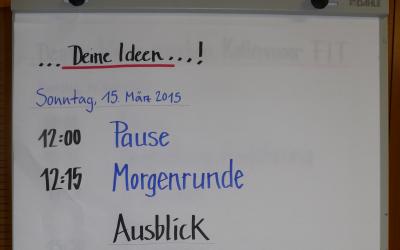 ... Deine Ideen ...!
Sonntag, 15. März 2015
12:00 Pause
12:15 Morgenrunde
Ausblick